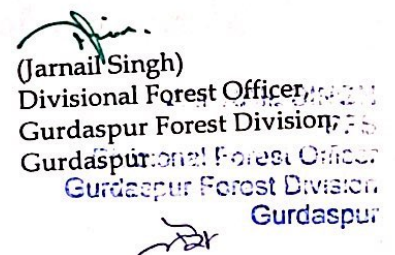 (Jarnail Singh)
Divisional Forest Officer,
Gurdaspur Forest Division,
Gurdaspur.
Divisional Forest Officer
Gurdaspur Forest Division
Gurdaspur